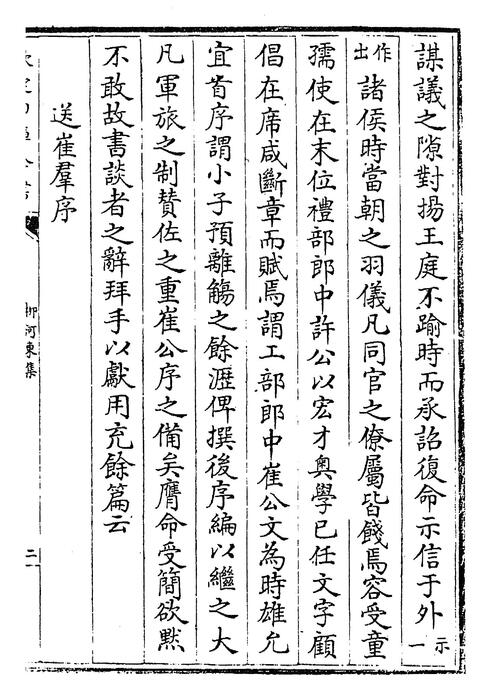 謀議之隙對揚王庭不踰時而承詔復命示信于外示一
作出諸侯時當朝之羽儀凡同官之僚屬皆餞焉容受童
孺使在末位禮部郎中許公以宏才奧學已任文字顧
倡在席咸斷章而賦焉謂工部郎中崔公文為時雄允
宜首序謂小子預離觴之餘瀝俾撰後序編以繼之大
凡軍旅之制賛佐之重崔公序之備矣膺命受簡欲黙
不敢故書談者之辭拜手以獻用充餘篇云
送崔羣序
柳河東集
二